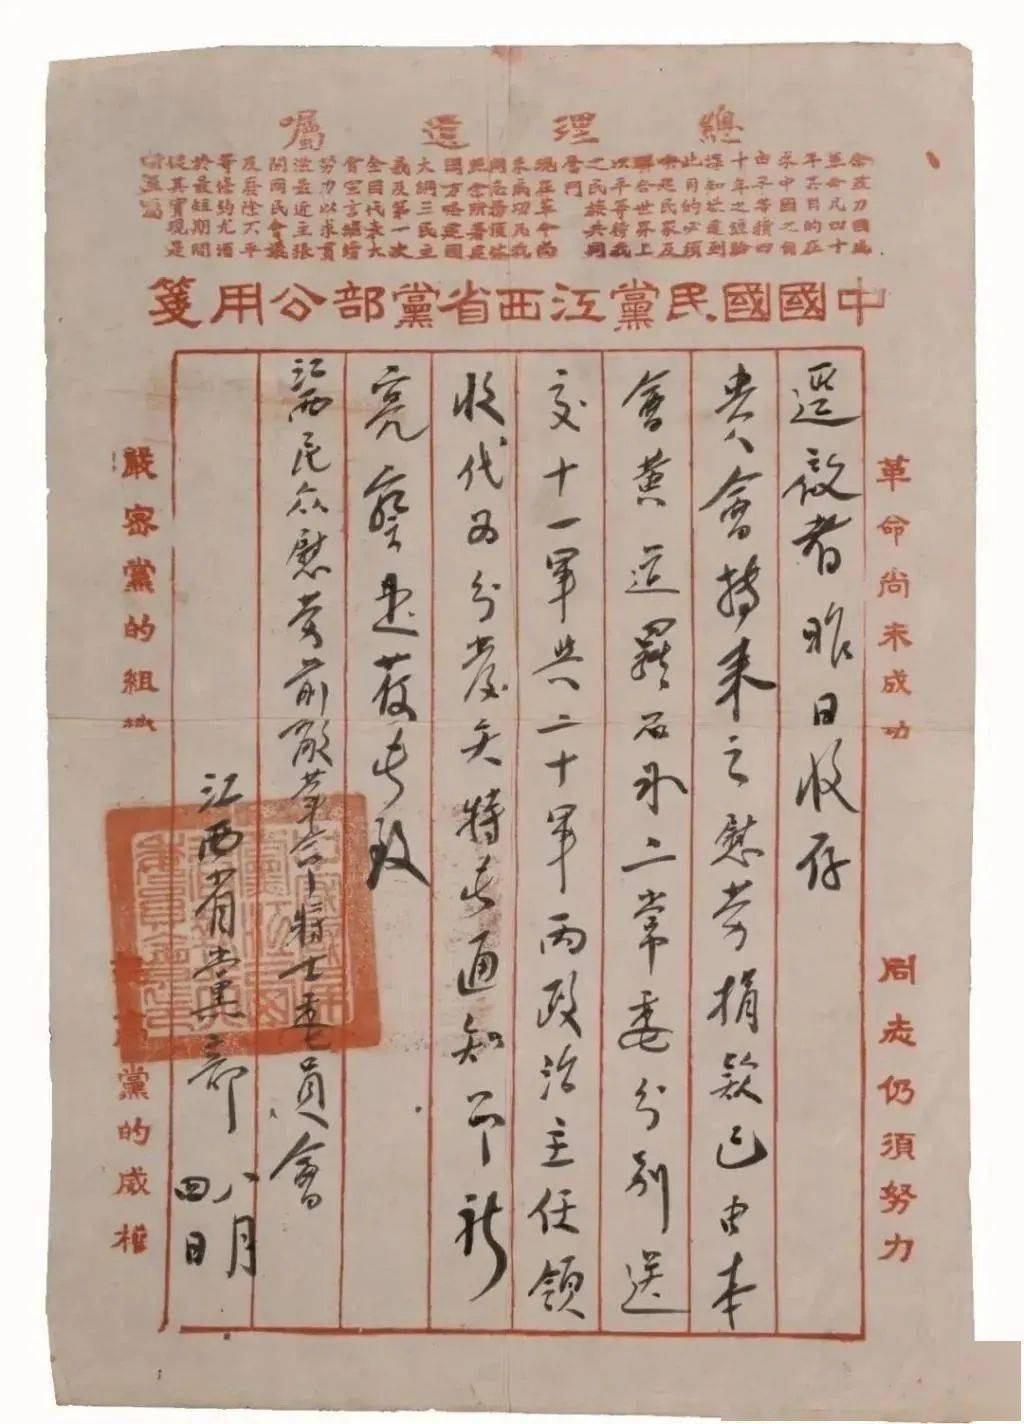 總理遺囑
余致力國民
革命凡四十
年其目的在
求中國之自
由平等積四
十年之經驗
深知欲達到
此目的必須
喚起民眾及
聯合世界上
以平等待我
之民族共同
奮鬥
現在革命尚
未成功凡我
同志務須依
照余所著建
國方略建國
大綱三民主
義及第一次
全國代表大
會宣言繼續
努力以求貫
澈最近主張
開國民會議
及廢除不平
等條約尤須
於最短期間
促其實現是
所至囑
中國國民黨江西省黨部公用箋
革命尚未成功 同志仍須努力
逕啟者昨日收存
貴會轉來之慰勞捐款已由本
會黃道羅石冰二常委分別送
交十一軍與二十軍兩政治主任領
收代为分發矣特此通知即祈
亮詧是荷此致
江西民众慰劳前敵革命将士委員會
江西省黨部 八月
四日
嚴密黨的組織 黨的威權